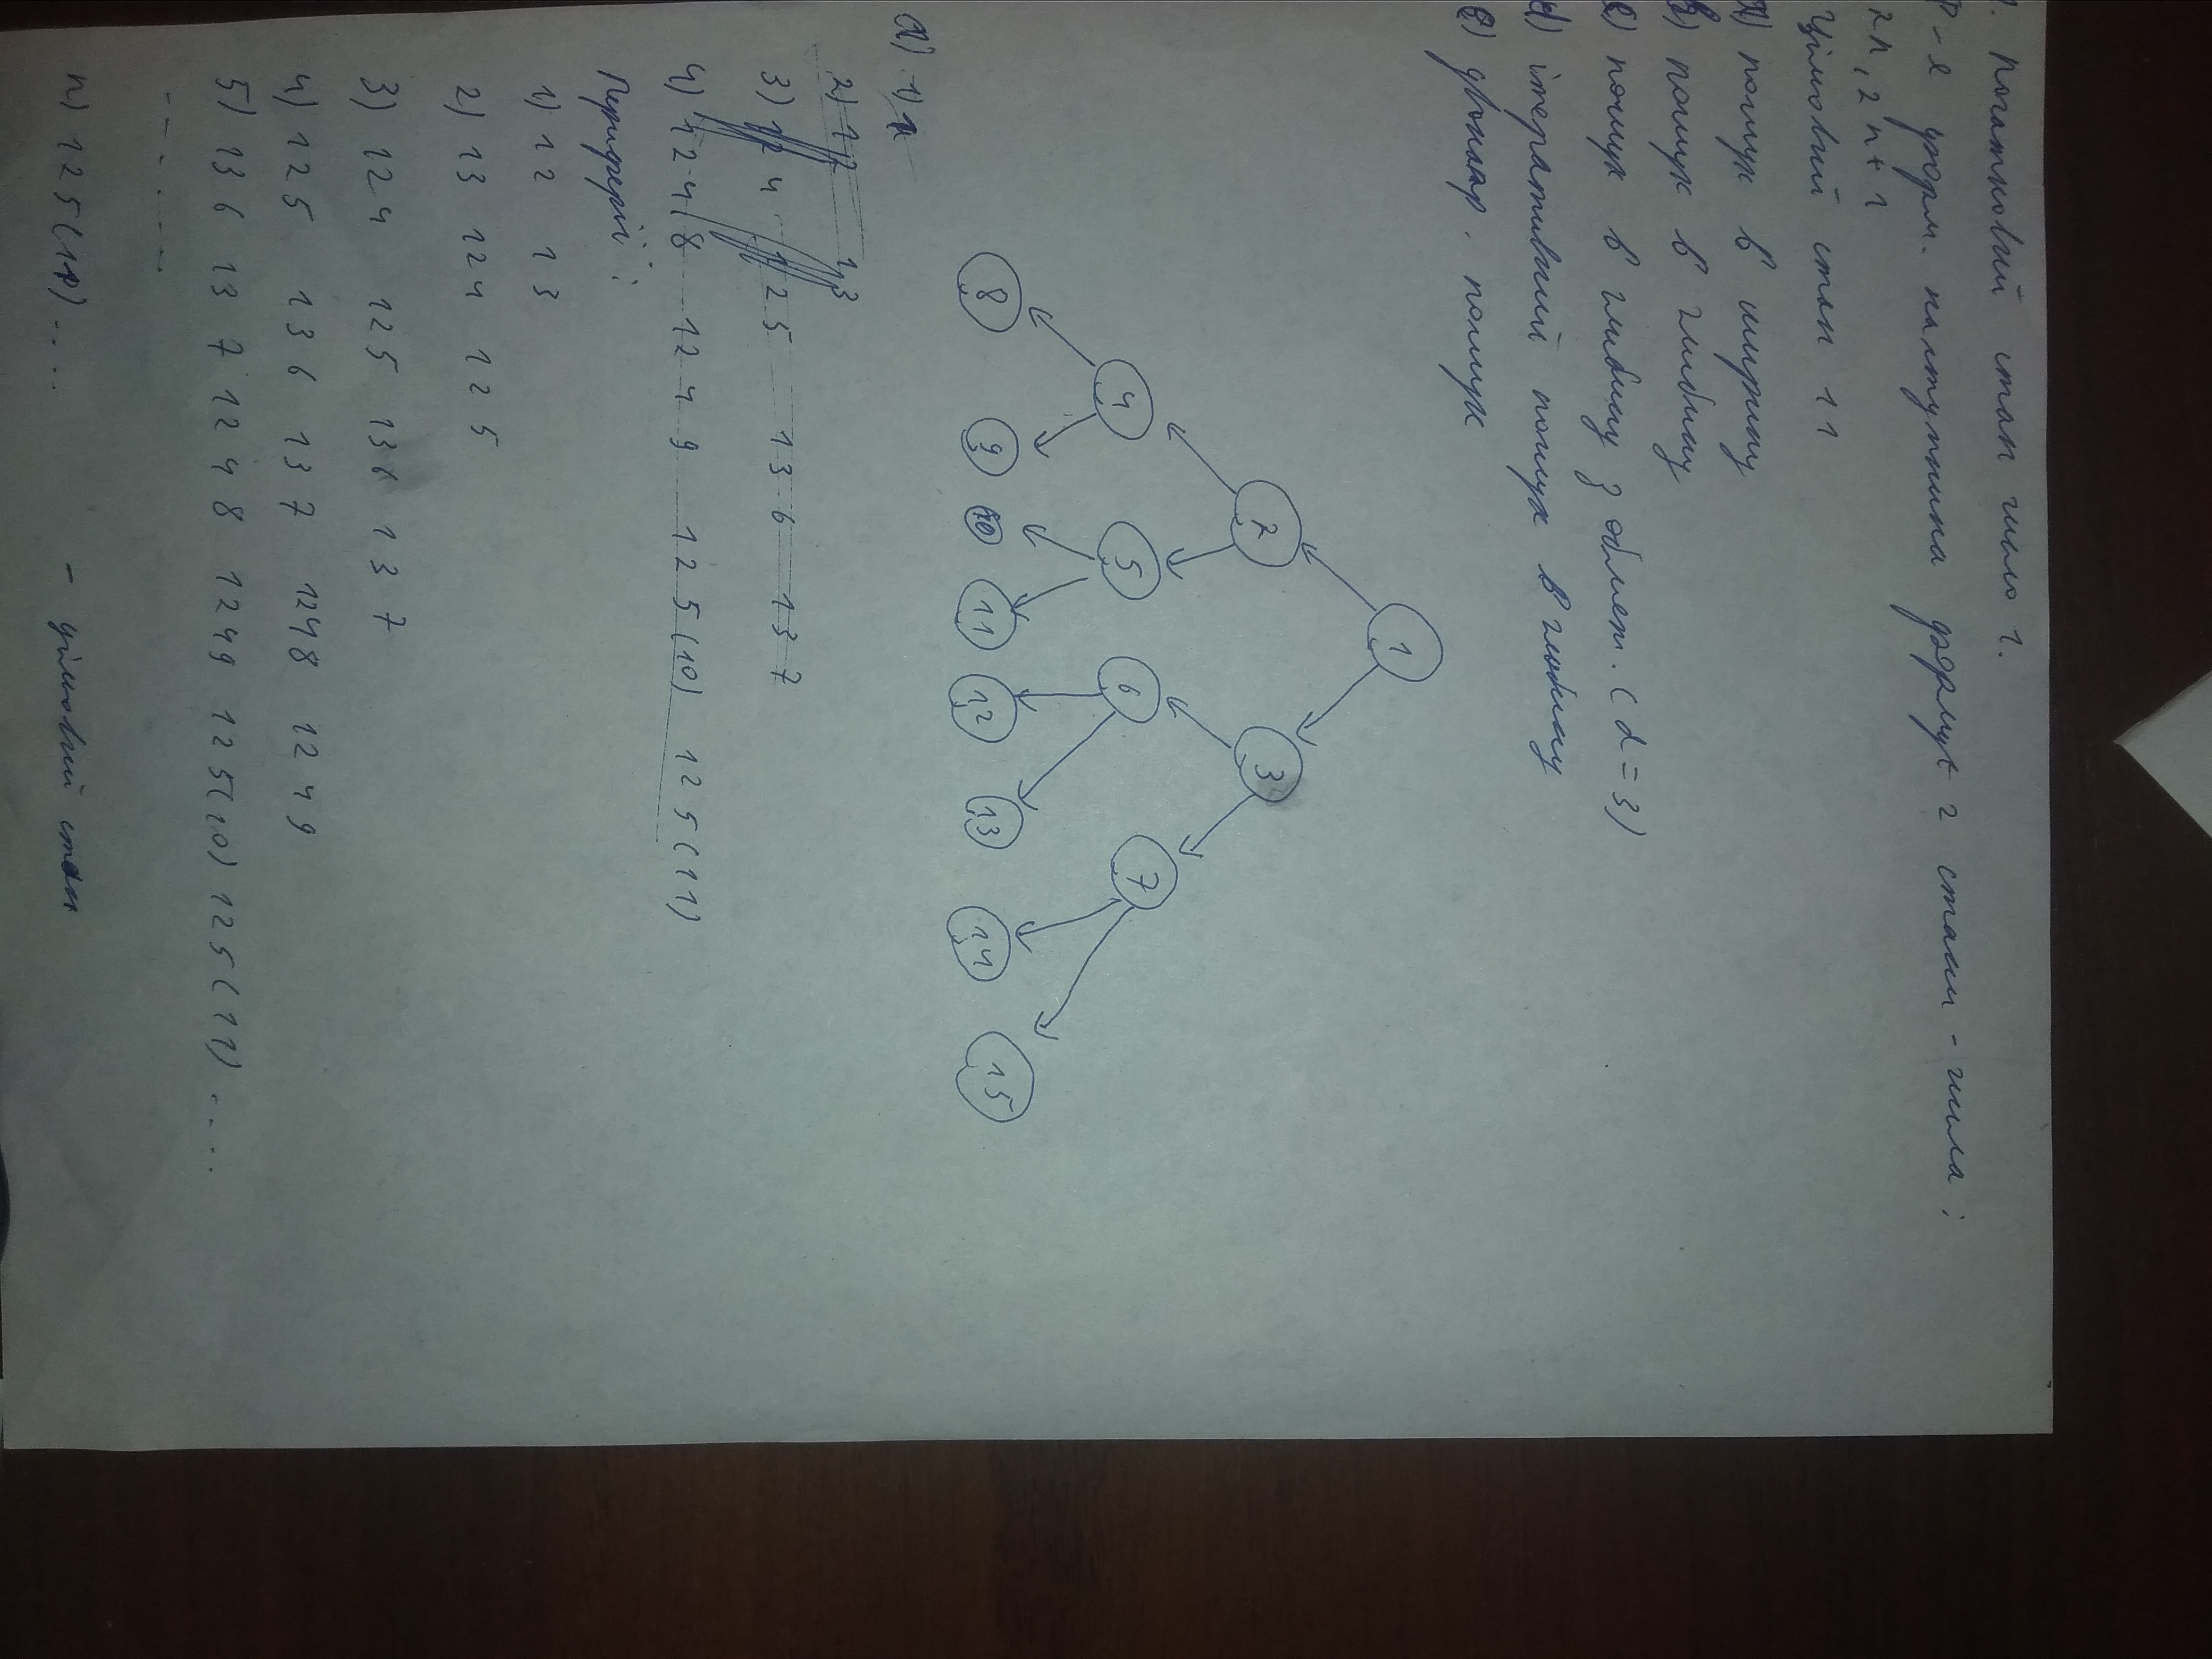 1. Початковий стан число 1.
Р-я форм. наступника держує 2 стани - числа:
2n, 2n+1
Цільовий стан 11
a) пошук в ширину
b) пошук в глибину
c) пошук в глибину з обмеж. (d=3)
d) ітеративний пошук в глибину
e) двонапр. пошук
1
2 3
4 5 6 7
8 9 10 11 12 13 14 15
a) 1) 1
2) 12 13
3) 124 125 136 137
4) 1248 1249 125(10) 125(11)
Периферії:
1) 12 13
2) 13 124 125
3) 124 125 136 137
4) 125 136 137 1248 1249
5) 136 137 1248 1249 125(10) 125(11) ....
- - - - - -
n) 125(11) .... - цільовий стан